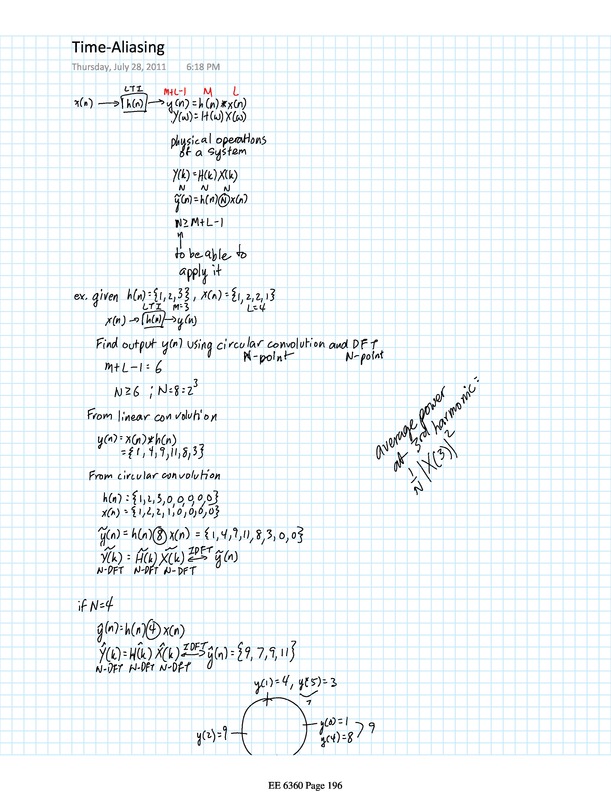 Time-Aliasing
Thursday, July 28, 2011 6:18 PM
LTI M+L-1 M L
x(n) → h(n) → y(n) = h(n) * x(n)
Y(ω) = H(ω) X(ω)
physical operations
of a system
Y(k) = H(k) X(k)
N N N
ỹ(n) = h(n) Ⓝ x(n)
N ≥ M+L-1
↑
to be able to
apply it
ex. given h(n) = {1, 2, 3}, x(n) = {1, 2, 2, 1}
LTI M=3 L=4
x(n) → h(n) → y(n)
Find output y(n) using circular convolution and DFT
N-point N-point
m+L-1 = 6
N ≥ 6 ; N = 8 = 2³
From linear convolution
y(n) = x(n) * h(n)
= {1, 4, 9, 11, 8, 3}
average power
at 3rd harmonic =
1/N |X(3)|²
From circular convolution
h(n) = {1, 2, 3, 0, 0, 0, 0, 0}
x(n) = {1, 2, 2, 1, 0, 0, 0, 0}
ỹ(n) = h(n) ⑧ x(n) = {1, 4, 9, 11, 8, 3, 0, 0}
Ỹ(k) = H̃(k) X̃(k) IDFT ↔ ỹ(n)
N-DFT N-DFT N-DFT
if N=4
ŷ(n) = h(n) ④ x(n)
Ŷ(k) = Ĥ(k) X̂(k) IDFT ↔ ŷ(n) = {9, 7, 9, 11}
N-DFT N-DFT N-DFT
y(1) = 4, y(5) = 3
7
y(0) = 1
y(4) = 8 > 9
y(2) = 9
EE 6360 Page 196